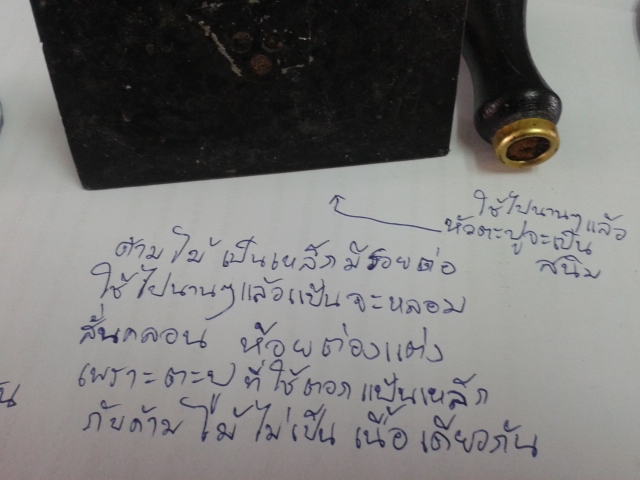 ใช้ไปนานๆแล้ว
หัวตะปูจะเป็น
สนิม
ด้ามไม้ เป็นเหล็กมีรอยต่อ
ใช้ไปนานๆแล้วแป้นจะหลอม
สั่นคลอน ห้อยต่องแต่ง
เพราะตะปูที่ใช้ตอกแป้นเหล็ก
กับด้ามไม้ไม่เป็นเนื้อเดียวกัน